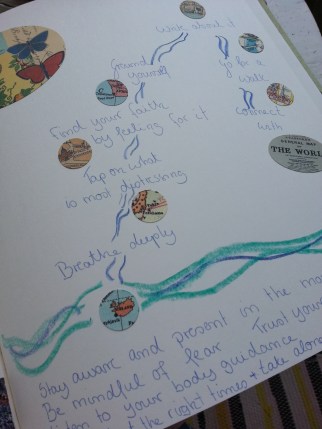 Write about it
Ground yourself
Go for a walk
Find your faith
by feeling for it
connect with
GENERAL MAP
THE WORLD
Tap on what
is most distressing
Breathe deeply
Stay aware and present in the mo
Be mindful of fear Trust your
listen to your body guidance
the right times + take along